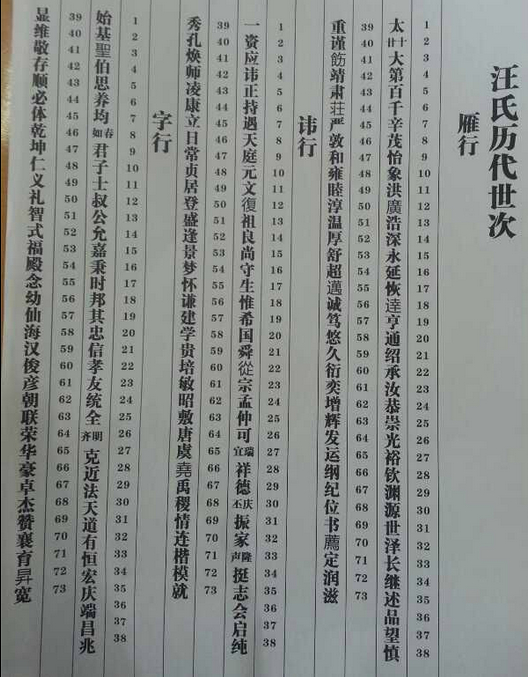 汪氏历代世次
雁行
1 2 3 4 5 6 7 8 9 10 11 12 13 14 15 16 17 18 19 20 21 22 23 24 25 26 27 28 29 30 31 32 33 34 35 36 37 38
太廿十大第百千辛茂怡象洪廣浩深永延恢達亨通绍承汝恭崇光裕钦渊源世泽长继述品望慎
39 40 41 42 43 44 45 46 47 48 49 50 51 52 53 54 55 56 57 58 59 60 61 62 63 64 65 66 67 68 69 70 71 72 73
重谨飭靖肃莊严敦和雍睦淳温厚舒超邁诚笃悠久衍奕增辉发运纲纪位书薦定润滋
讳行
1 2 3 4 5 6 7 8 9 10 11 12 13 14 15 16 17 18 19 20 21 22 23 24 25 26 27 28 29 30 31 32 33 34 35 36 37 38
一资应讳正持遇天庭元文復祖良尚守生惟希国舜從宗孟仲可宜瑞祥德丕庆振家声隆挺志会启纯
39 40 41 42 43 44 45 46 47 48 49 50 51 52 53 54 55 56 57 58 59 60 61 62 63 64 65 66 67 68 69 70 71 72 73
秀孔焕师凌康立日常贞居登盛逢景梦怀谦建学贵培敏昭敷唐虞堯禹稷情连楷模就
字行
1 2 3 4 5 6 7 8 9 10 11 12 13 14 15 16 17 18 19 20 21 22 23 24 25 26 27 28 29 30 31 32 33 34 35 36 37 38
始基聖伯思养均如春君子士叔公允嘉秉时邦其忠信孝友统全齐明克近法天道有恒宏庆端昌兆
39 40 41 42 43 44 45 46 47 48 49 50 51 52 53 54 55 56 57 58 59 60 61 62 63 64 65 66 67 68 69 70 71 72 73
显维敬存顺必体乾坤仁义礼智式福殿念幼仙海汉俊彦朝联荣华豪卓杰赞襄育昇宽